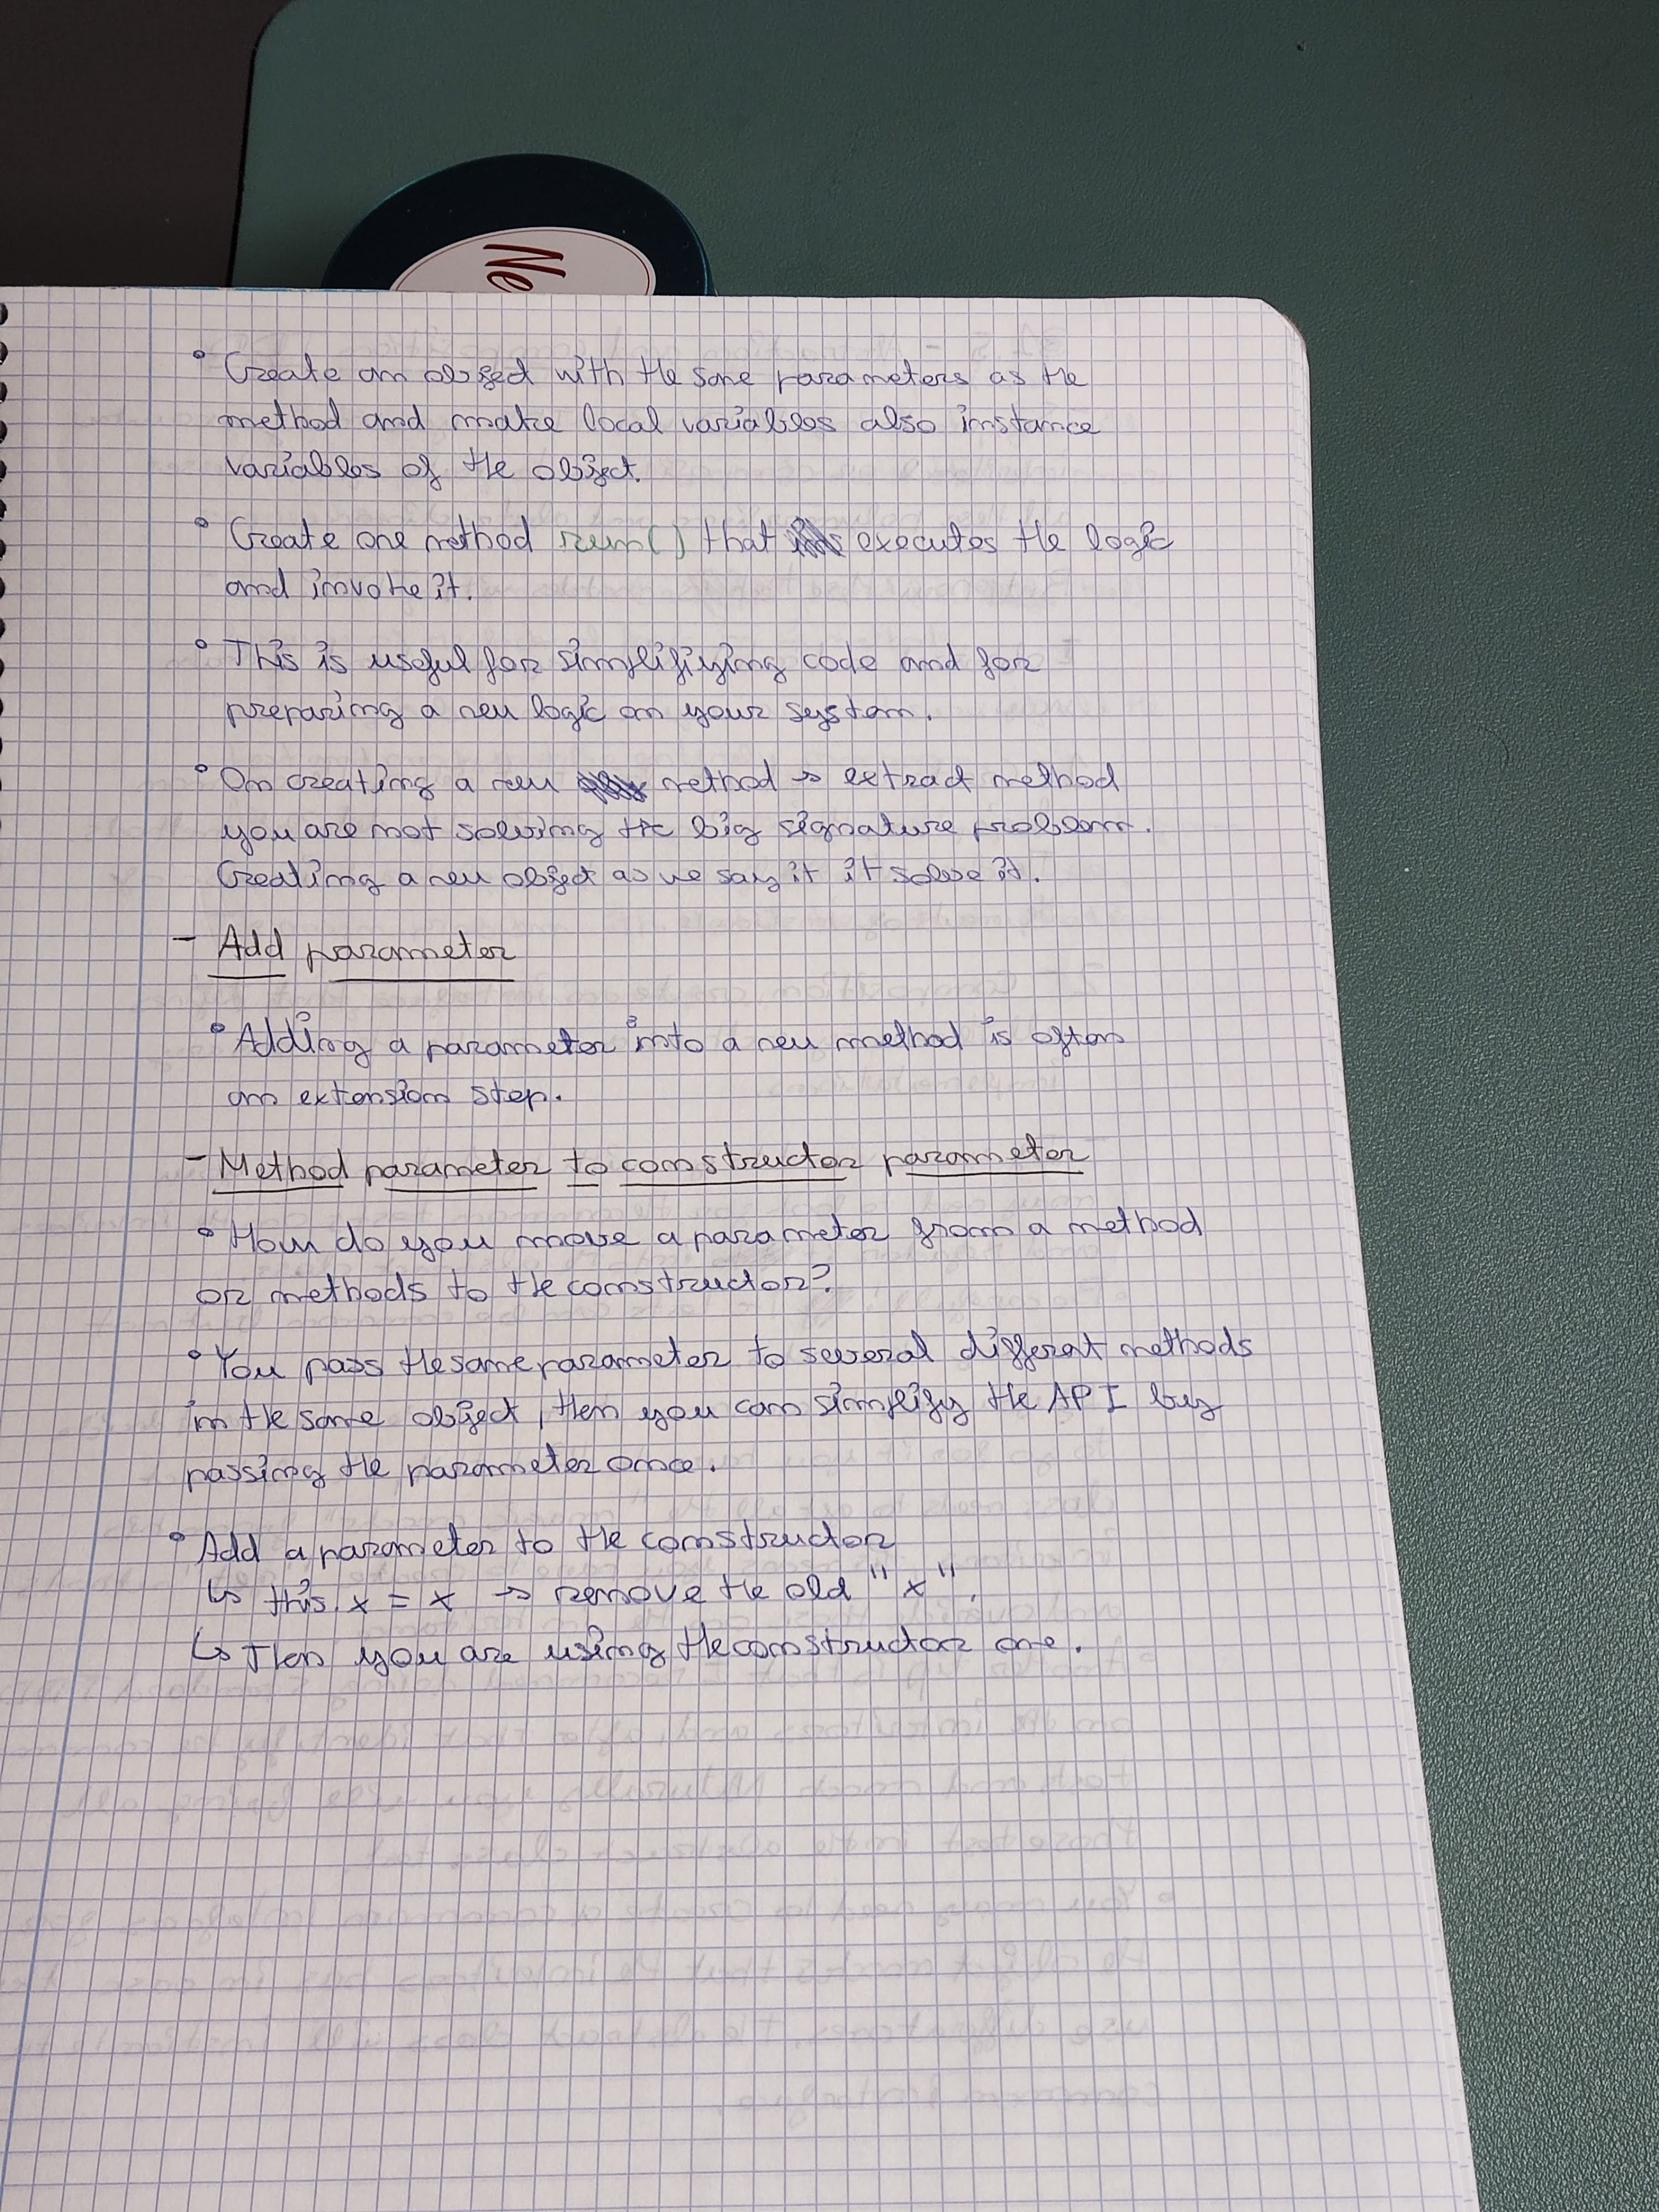 Ne
• Create an object with the same parameters as the
method and make local variables also instance
variables of the object.
• Create one method run() that executes the logic
and invoke it.
• This is useful for simplifiying code and for
preparing a new logic on your system.
• On creating a new method → extract method
you are not solving the big signature problem.
Creating a new object as we say it it solve it.
- Add parameter
• Adding a parameter into a new method is often
an extension step.
- Method parameter to constructor parameter
• How do you move a parameter from a method
or methods to the constructor?
• You pass the same parameter to several different methods
in the same object, then you can simplify the API by
passing the parameter once.
• Add a parameter to the constructor
↳ this.x = x → remove the old "x".
↳ Then you are using the constructor one.